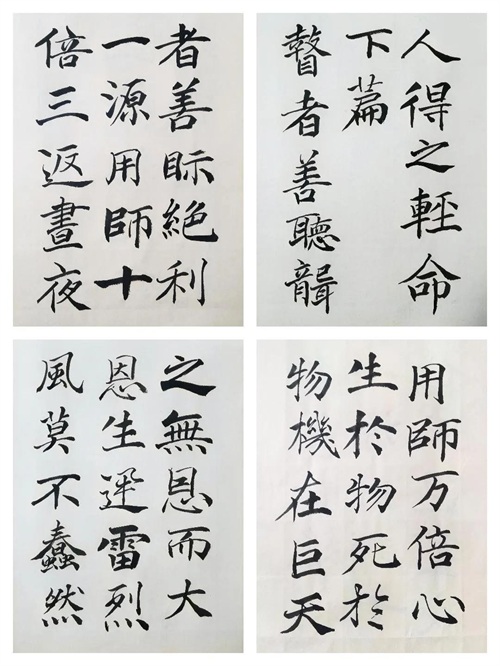 人得之輕命
下篇
瞽者善聽聾
者善眎絕利
一源用師十
倍三返晝夜
用師万倍心
生於物死於
物機在巨天
之無恩而大
恩生迅雷烈
風莫不蠢然